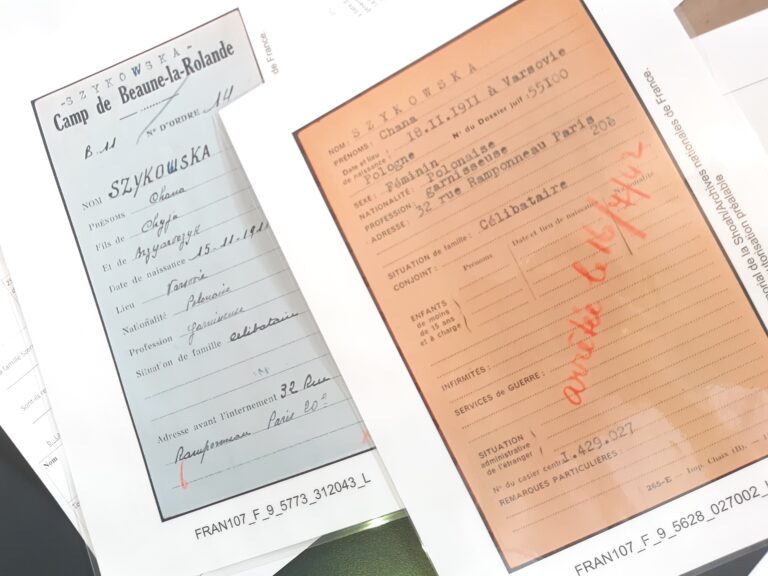 - SZYKOWSKA -
Camp de Beaune-la-Rolande
B.11 N° D'ORDRE 14
NOM SZYKOWSKA
PRÉNOMS Chana
Fils de Chyja
Et de
Date de naissance 15-11-1911
Lieu Varsovie
Nationalité Polonaise
Profession garnisseuse
Situat'on de famille celibataire
Adresse avant l'internement 32 Rue
Ramponneau Paris 20e
FRAN107_F_9_5773_312043_L
de France.
NOM: SZYKOWSKA
PRÉNOMS: Chana
Date et lieu de naissance: 18.11.1911 à Varsovie
Pologne N° du Dossier juif: 55100
SEXE: Féminin
NATIONALITÉ: Polonaise
PROFESSION: garnisseuse
ADRESSE: 32 rue Ramponneau Paris 20è
SITUATION de famille: Célibataire
CONJOINT: Prénoms Date et lieu de naissance Nationalité
ENFANTS
de moins
de 15 ans
et à charge
arrêtée le 16/7/42
INFIRMITÉS:
SERVICES DE GUERRE:
SITUATION
administrative
de l'étranger
N° du casier central I.429.027
REMARQUES PARTICULIÈRES:
265-E Imp. Chaix (B).
FRAN107_F_9_5628_027002_L
de la Shoah/Archives nationales de France.
autorisation préalable